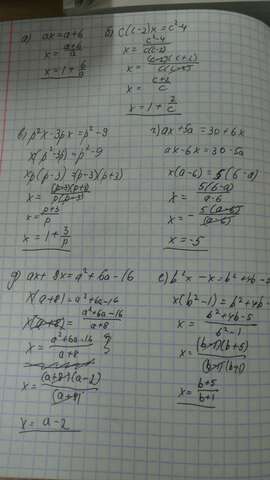 а) ax = a+6
x = (a+6)/a
x = 1 + 6/a
б) c(c-2)x = c²-4
x = (c²-4)/(c(c-2))
x = ((c-2)(c+2))/(c(c-2))
x = (c+2)/c
x = 1 + 2/c
в) p²x-3px = p²-9
x(p²-3p) = p²-9
xp(p-3) = (p-3)(p+3)
x = ((p-3)(p+3))/(p(p-3))
x = (p+3)/p
x = 1 + 3/p
г) ax+5a = 30+6x
ax-6x = 30-5a
x(a-6) = 5(6-a)
x = 5(6-a)/(a-6)
x = - 5(a-6)/(a-6)
x = -5
д) ax+8x = a²+6a-16
x(a+8) = a²+6a-16
x(a+8) = (a²+6a-16)/(a+8)
x = (a²+6a-16)/(a+8)
x = ((a+8)(a-2))/(a+8)
x = a-2
е) b²x-x = b²+4b-
x(b²-1) = b²+4b-
x = (b²+4b-5)/(b²-1)
x = ((b-1)(b+5))/((b-1)(b+1))
x = (b+5)/(b+1)